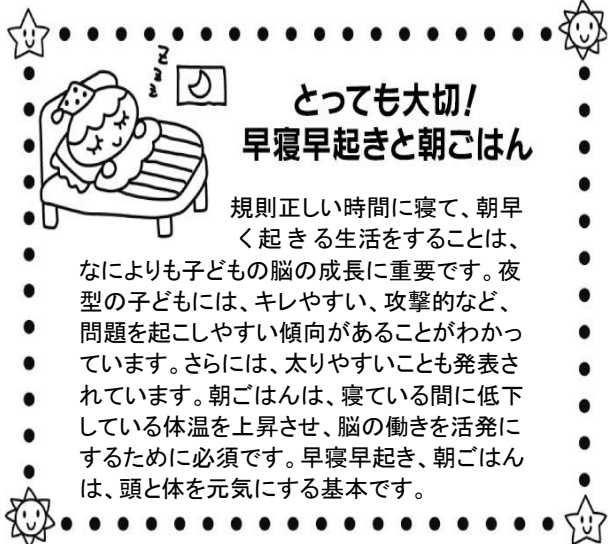 z
z
z
とっても大切!
早寝早起きと朝ごはん
規則正しい時間に寝て、朝早
く起きる生活をすることは、
なによりも子どもの脳の成長に重要です。夜
型の子どもには、キレやすい、攻撃的など、
問題を起こしやすい傾向があることがわかっ
ています。さらには、太りやすいことも発表さ
れています。朝ごはんは、寝ている間に低下
している体温を上昇させ、脳の働きを活発に
するために必須です。早寝早起き、朝ごはん
は、頭と体を元気にする基本です。